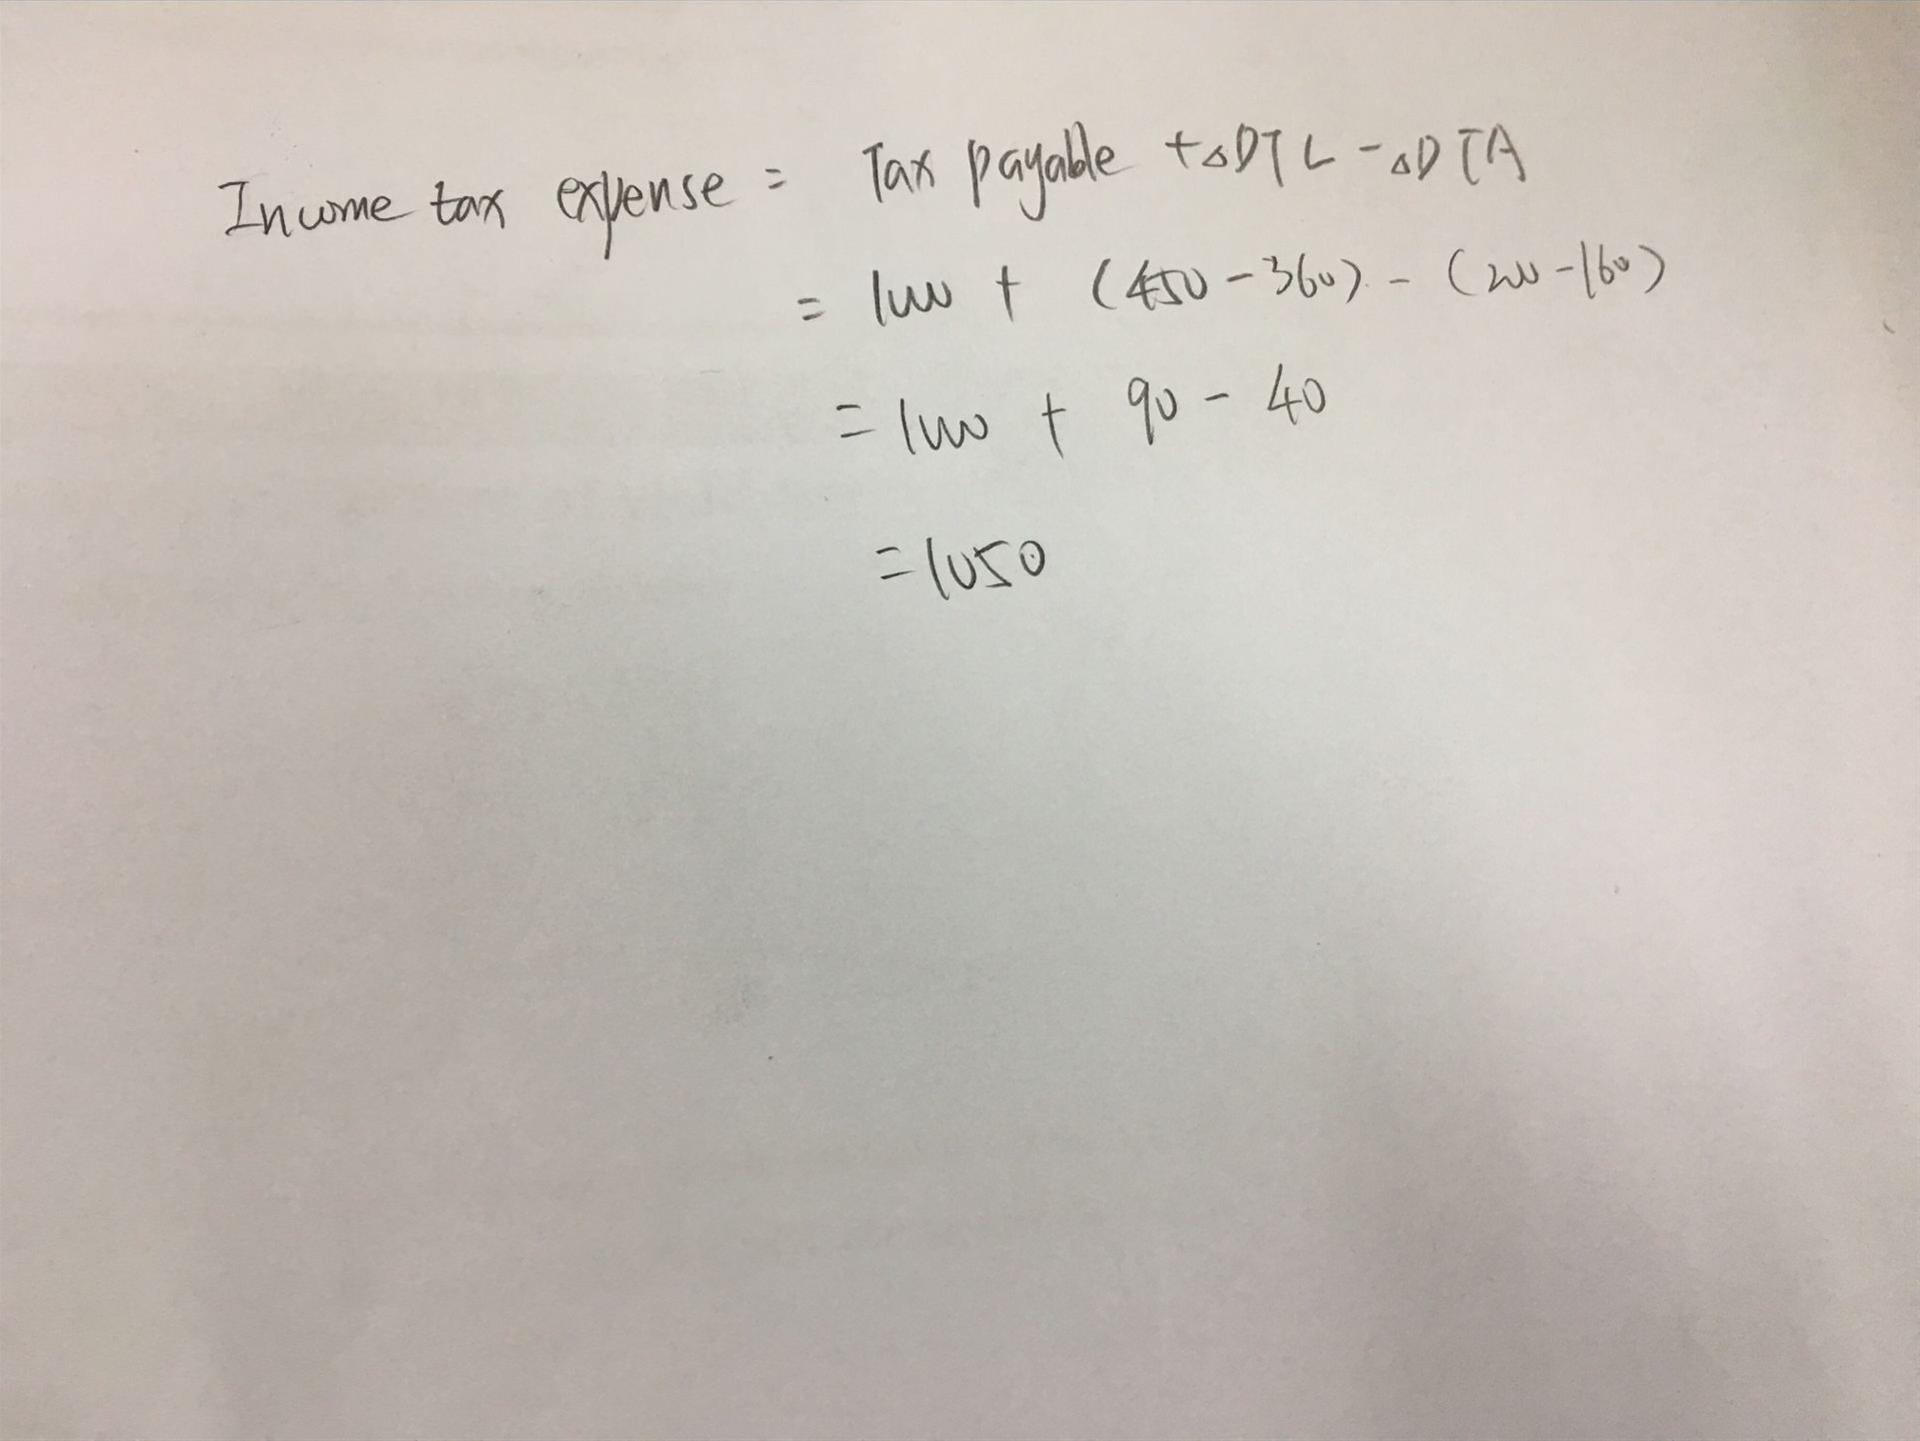 Income tax expense = Tax payable +△DTL -△DTA
= 1000 + (450-360) - (200-160)
= 1000 + 90 - 40
= 1050